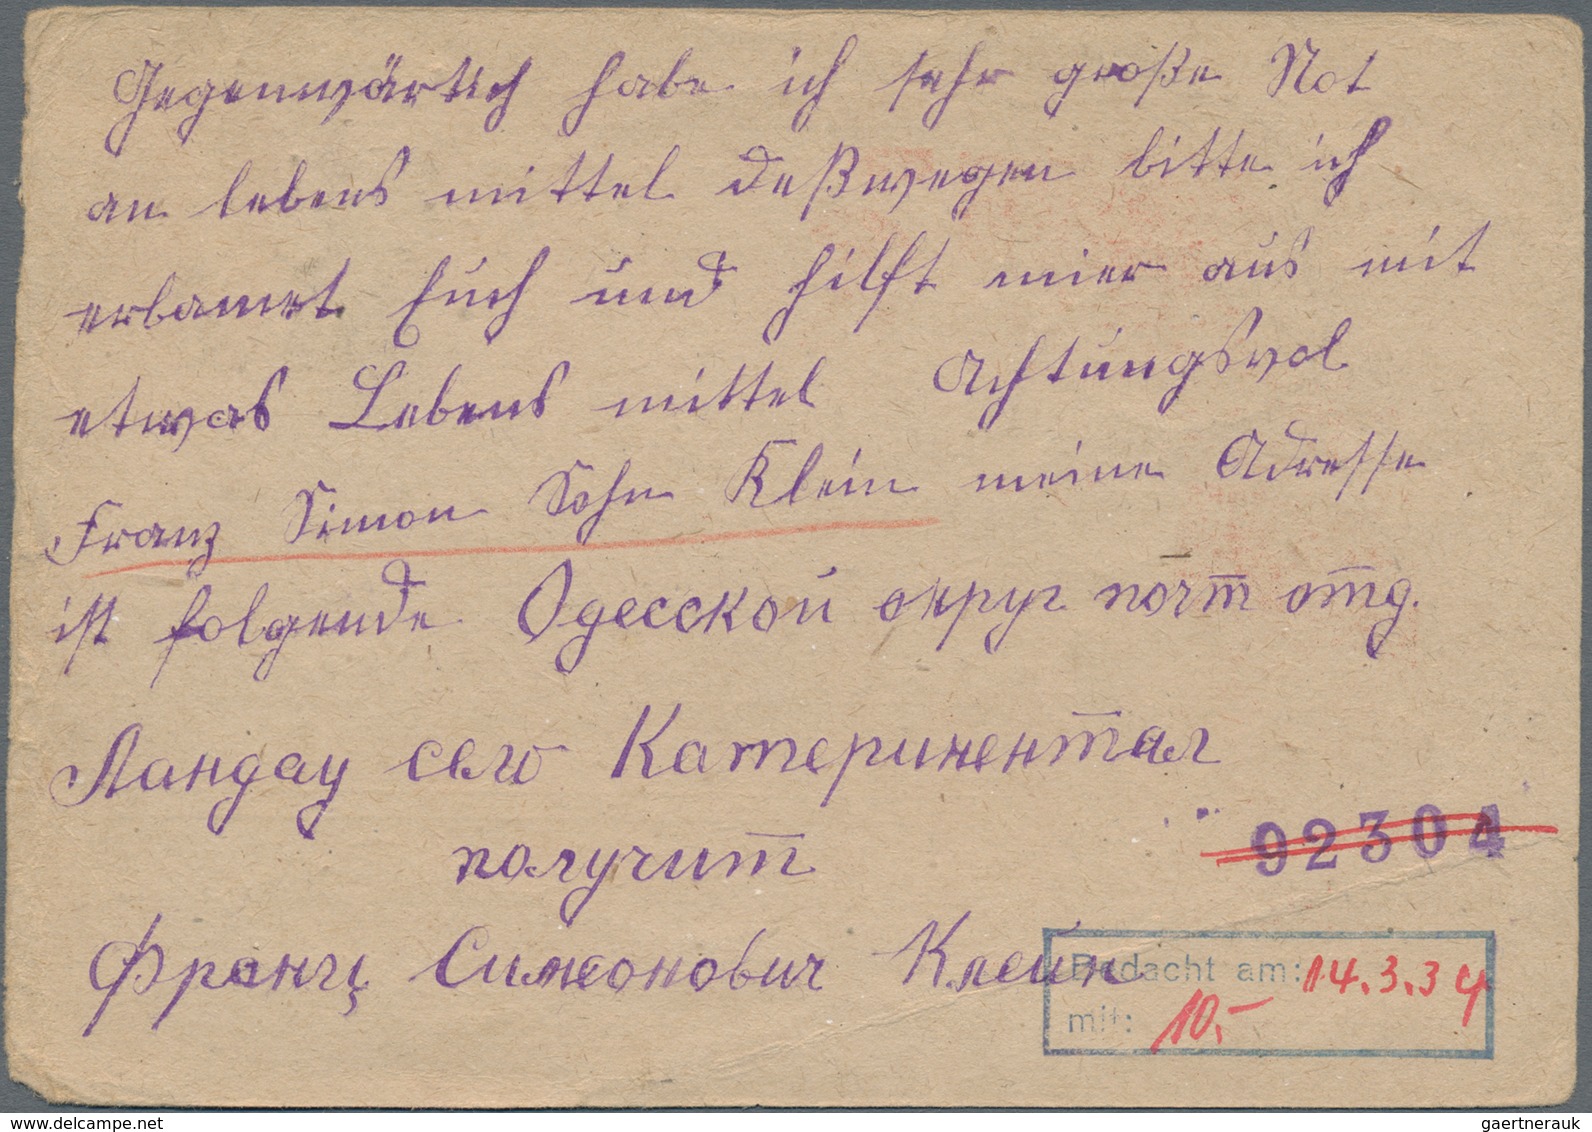 Gegenwärtich habe ich sehr große Not
an lebens mittel deßwegen bitte ich
erbamet Euch und hilft mier aus mit
etwas Lebens mittel Achtungsvol
Franz Simon Sohn Klein meine Adresse
ist folgende Одесской округ почт отд.
Ландау село Катериненталь
получит
92304
Франц Симонович Клейн
Bedacht am: 14.3.34
mit: 10,-
gaertnerauk